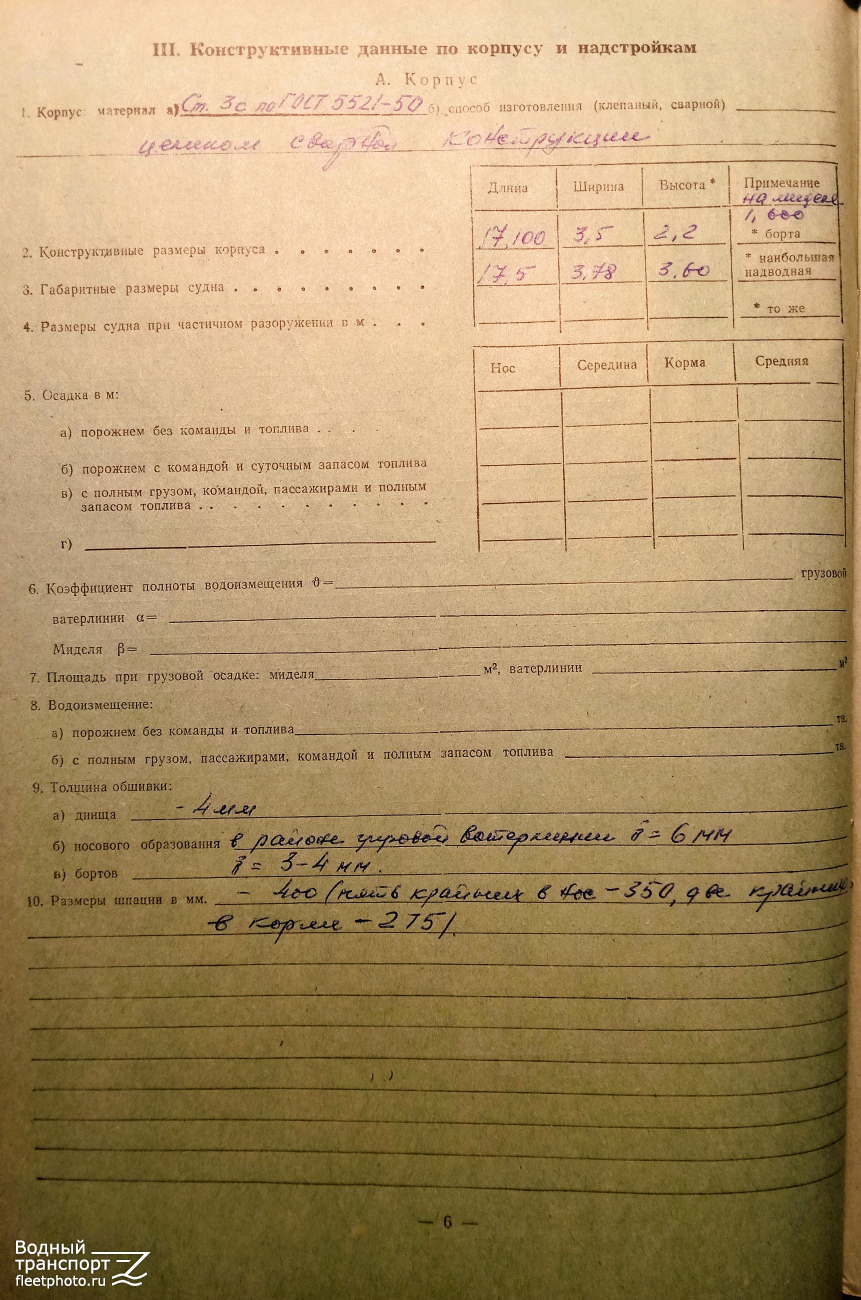 III. Конструктивные данные по корпусу и надстройкам
А. Корпус
1. Корпус: материал а) Ст. 3с по ГОСТ 5521-50 б) способ изготовления (клепаный, сварной)
целиком сварной конструкции
Длина Ширина Высота * Примечание
на миделе
1,
2. Конструктивные размеры корпуса 17,100 3,5 2,2 * борта
3. Габаритные размеры судна 17,5 3,78 3,60 * наибольшая надводная
4. Размеры судна при частичном разоружении в м * то же
Нос Середина Корма Средняя
5. Осадка в м:
а) порожнем без команды и топлива
б) порожнем с командой и суточным запасом топлива
в) с полным грузом, командой, пассажирами и полным
запасом топлива
г)
6. Коэффициент полноты водоизмещения ϑ= грузовой
ватерлинии α=
Миделя β=
7. Площадь при грузовой осадке: миделя м², ватерлинии м²
8. Водоизмещение:
а) порожнем без команды и топлива тн.
б) с полным грузом, пассажирами, командой и полным запасом топлива тн.
9. Толщина обшивки:
а) днища - 4 мм
б) носового образования в районе грузовой ватерлинии = 6 мм
в) бортов = 3-4 мм.
10. Размеры шпации в мм. - 400 (пять крайних в нос - 350, две крайних
в корме - 275).
— 6 —
Водный
транспорт
fleetphoto.ru